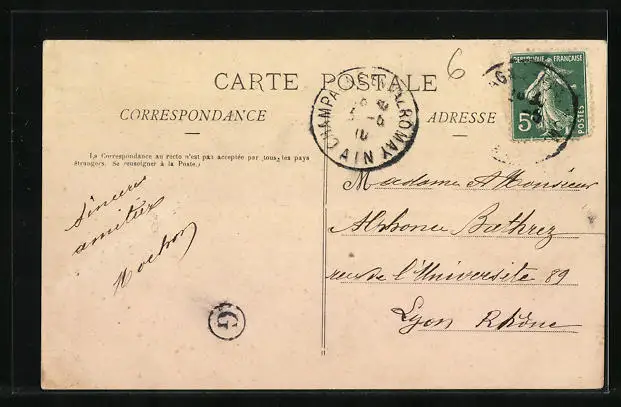 CARTE POSTALE
CORRESPONDANCE
ADRESSE
La Correspondance au recto n'est pas acceptée par tous les pays
étrangers. Se renseigner à la Poste.)
6
REPUBLIQUE FRANÇAISE
5c
POSTES
CHAMPAGNE-EN-VALROMEY
10
AIN
Sincères
amitiés
Madame & Monsieur
Alphonse
rue de l'Université 89
Lyon Rhône
G